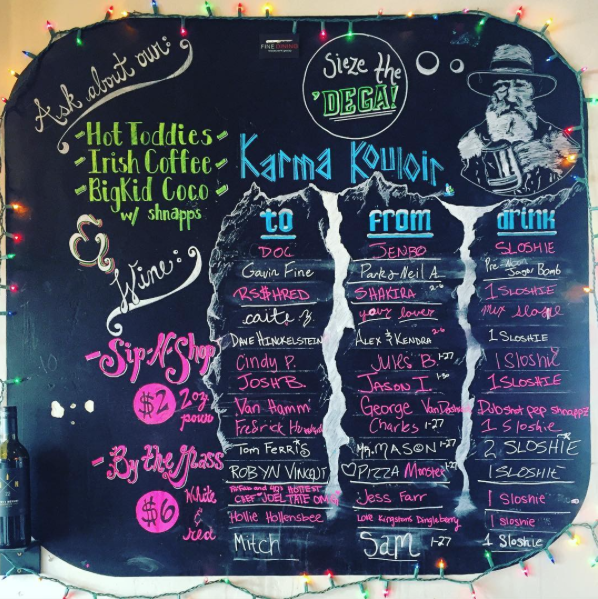 FINE DINING
Ask about our:
Sieze the
'DEGA!
-Hot Toddies-
-Irish Coffee-
-BigKid Coco-
w/ shnapps
&
Wine:
-Sip-N-Shop
$2 2oz
pour
-By the glass
$6 White
&
red
Karma Kouloir
to from drink
DOC JENBO SLOSHIE
Gavin Fine Parks Neil A. Pre-Noon Jager Bomb
R$$HRED SHAKIRA 2-6 1 SLOSHIE
caite your lover
DAVE HINCKELSTEIN ALEX & KENDRA 2-6 1 SLOSHIE
Cindy P. Jules B. 1-27 1 Sloshie
JOSH B. JASON I. 1-30 1 SLOSHIE
Van Hamm George Dubshot pep shnappz
Fredrick Charles 1-27 1 Sloshie
Tom Ferris Mr. MASON 1-27 2 SLOSHIE
ROBYN VINCENT PIZZA Monster 1-27 1 SLOSHIE
HOTTEST
CHEF "JOEL TATE ONLY" Jess Farr 1 Sloshie
Hollie Hollensbee Love Kingstons Dingleberry 1 sloshie
Mitch Sam 1-27 1 Sloshie